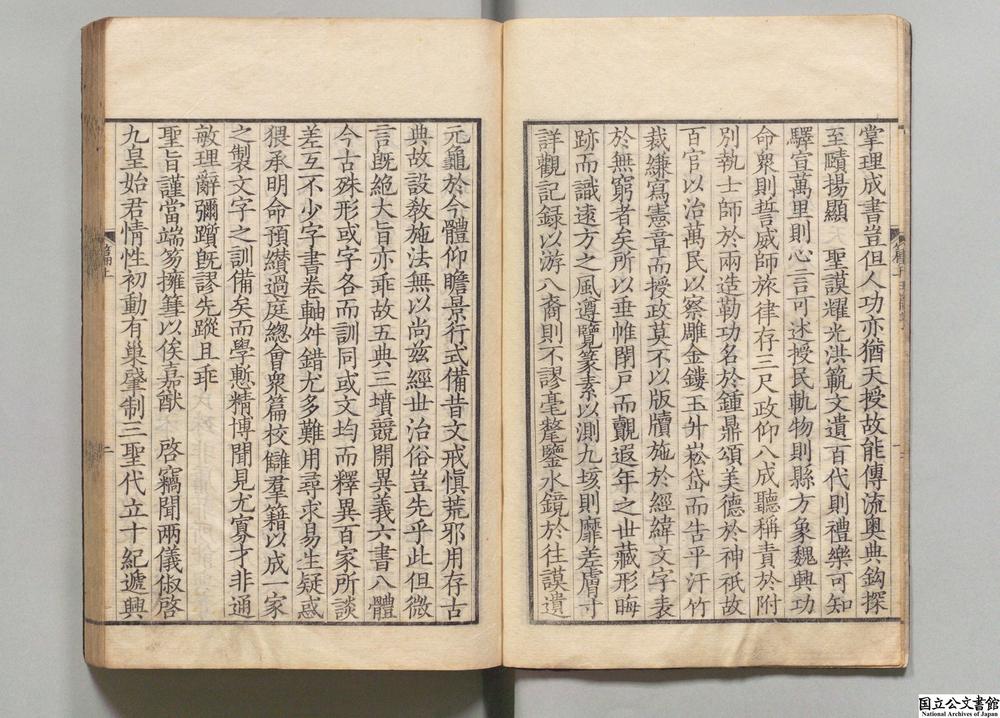 掌理成書豈但人功亦猶天授故能傳流奧典鈎探
至賾揚顯 聖謨耀光洪範文遺百代則禮樂可知
驛宣萬里則心言可述授民軌物則縣方象魏興功
命衆則誓威師旅律存三尺政仰八成聽稱責於附
別執士師於兩造勒功名於鍾鼎頌美德於神祇故
百官以治萬民以察雕金鏤玉升崧岱而告平汗竹
裁縑寫憲章而授政莫不以版牘施於經緯文字表
於無窮者矣所以垂帷閉戸而覿遐年之世藏形晦
跡而識遠方之風遵覽篆素以測九垓則靡差膚寸
詳觀記録以游八裔則不謬毫釐鑒水鏡於往謨遺
元龜於今體仰瞻景行式備昔文戒愼荒邪用存古
典故設敎施法無以尚兹經世治俗豈先乎此但微
言旣絶大旨亦乖故五典三墳競開異義六書八體
今古殊形或字各而訓同或文均而釋異百家所談
差互不少字書卷軸舛錯尤多難用尋求易生疑惑
猥承明命預纘過庭總會衆篇校讎羣籍以成一家
之製文字之訓備矣而學慙精博聞見尤寡才非通
敏理辭彌躓旣謬先蹤且乖
聖旨謹當端笏擁篲以俟嘉猷 啓竊聞兩儀俶啓
九皇始君情性初動有巢肇制三聖代立十紀遞興
二
國立公文書館
National Archives of Japan